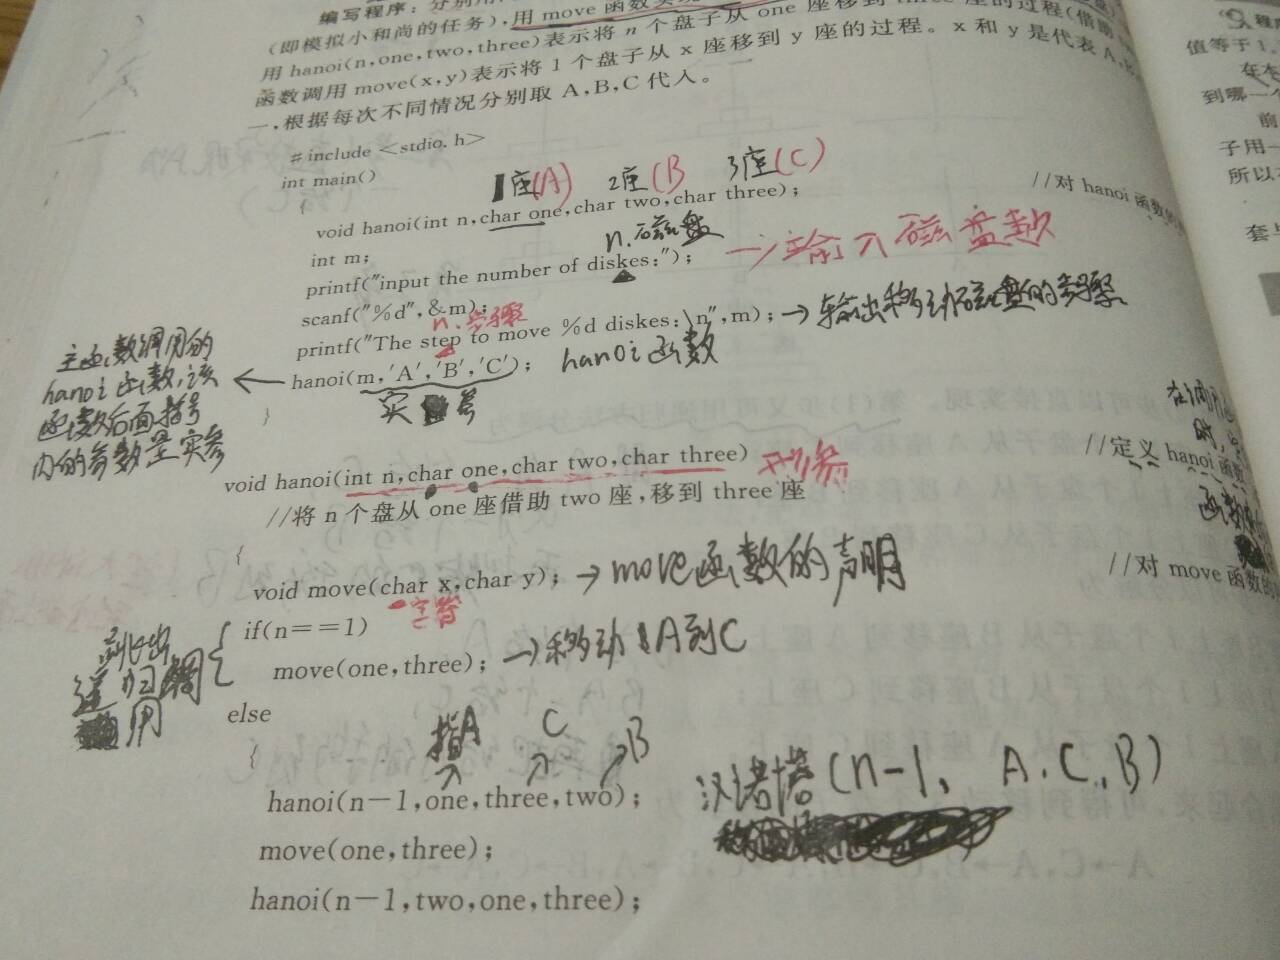 编写程序：分别用
（即模拟小和尚的任务），用 move 函数实现
用 hanoi(n,one,two,three)表示将 n 个盘子从 one 座移到 three 座的过程（借助
函数调用 move(x,y)表示将 1 个盘子从 x 座移到 y 座的过程。x 和 y 是代表 A、B、
一，根据每次不同情况分别取 A,B,C 代入。
# include <stdio. h>
int main()
1座(A) 2座(B 3座(C)
{
void hanoi(int n,char one,char two,char three);
//对 hanoi 函数的
n.磁盘
int m;
printf("input the number of diskes:");
→输入磁盘数
scanf("%d",&m);
n.步骤
printf("The step to move %d diskes:\n",m);
→输出移动磁盘的步骤
hanoi(m,'A','B','C');
hanoi函数
实参
主函数调用的
hanoi函数,该
函数后面括号
内的参数是实参
}
void hanoi(int n,char one,char two,char three)
形参
//定义 hanoi 函数
//将 n 个盘从 one 座借助 two 座,移到 three 座
{
void move(char x,char y);
→move函数的声明
//对 move 函数的
字符
if(n==1)
move(one,three);
→移动A到C
跳出
递归调
用
else
指A C B
{
hanoi(n-1,one,three,two);
汉诺塔(n-1, A.C.B)
move(one,three);
hanoi(n-1,two,one,three);
值等于 1,
到哪一个
前
子用一
所以
套